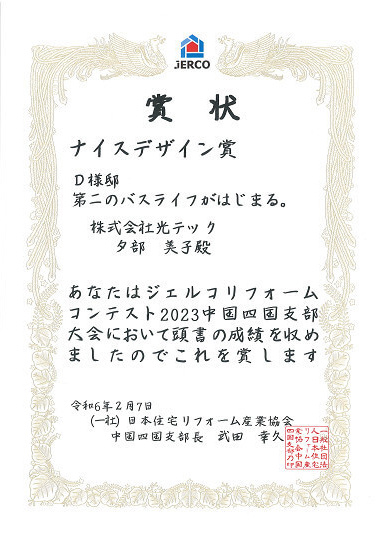 JERCO
賞状
ナイスデザイン賞
D様邸
第二のバスライフがはじまる。
株式会社光テック
夕部 美子殿
あなたはジェルコリフォーム
コンテスト2023中国四国支部
大会において頭書の成績を収め
ましたのでこれを賞します
令和6年2月7日
(一社)日本住宅リフォーム産業協会
中国四国支部長 武田 幸久
一般社団法
人日本住宅
リフォーム産
業協会中国
四国支部乃印